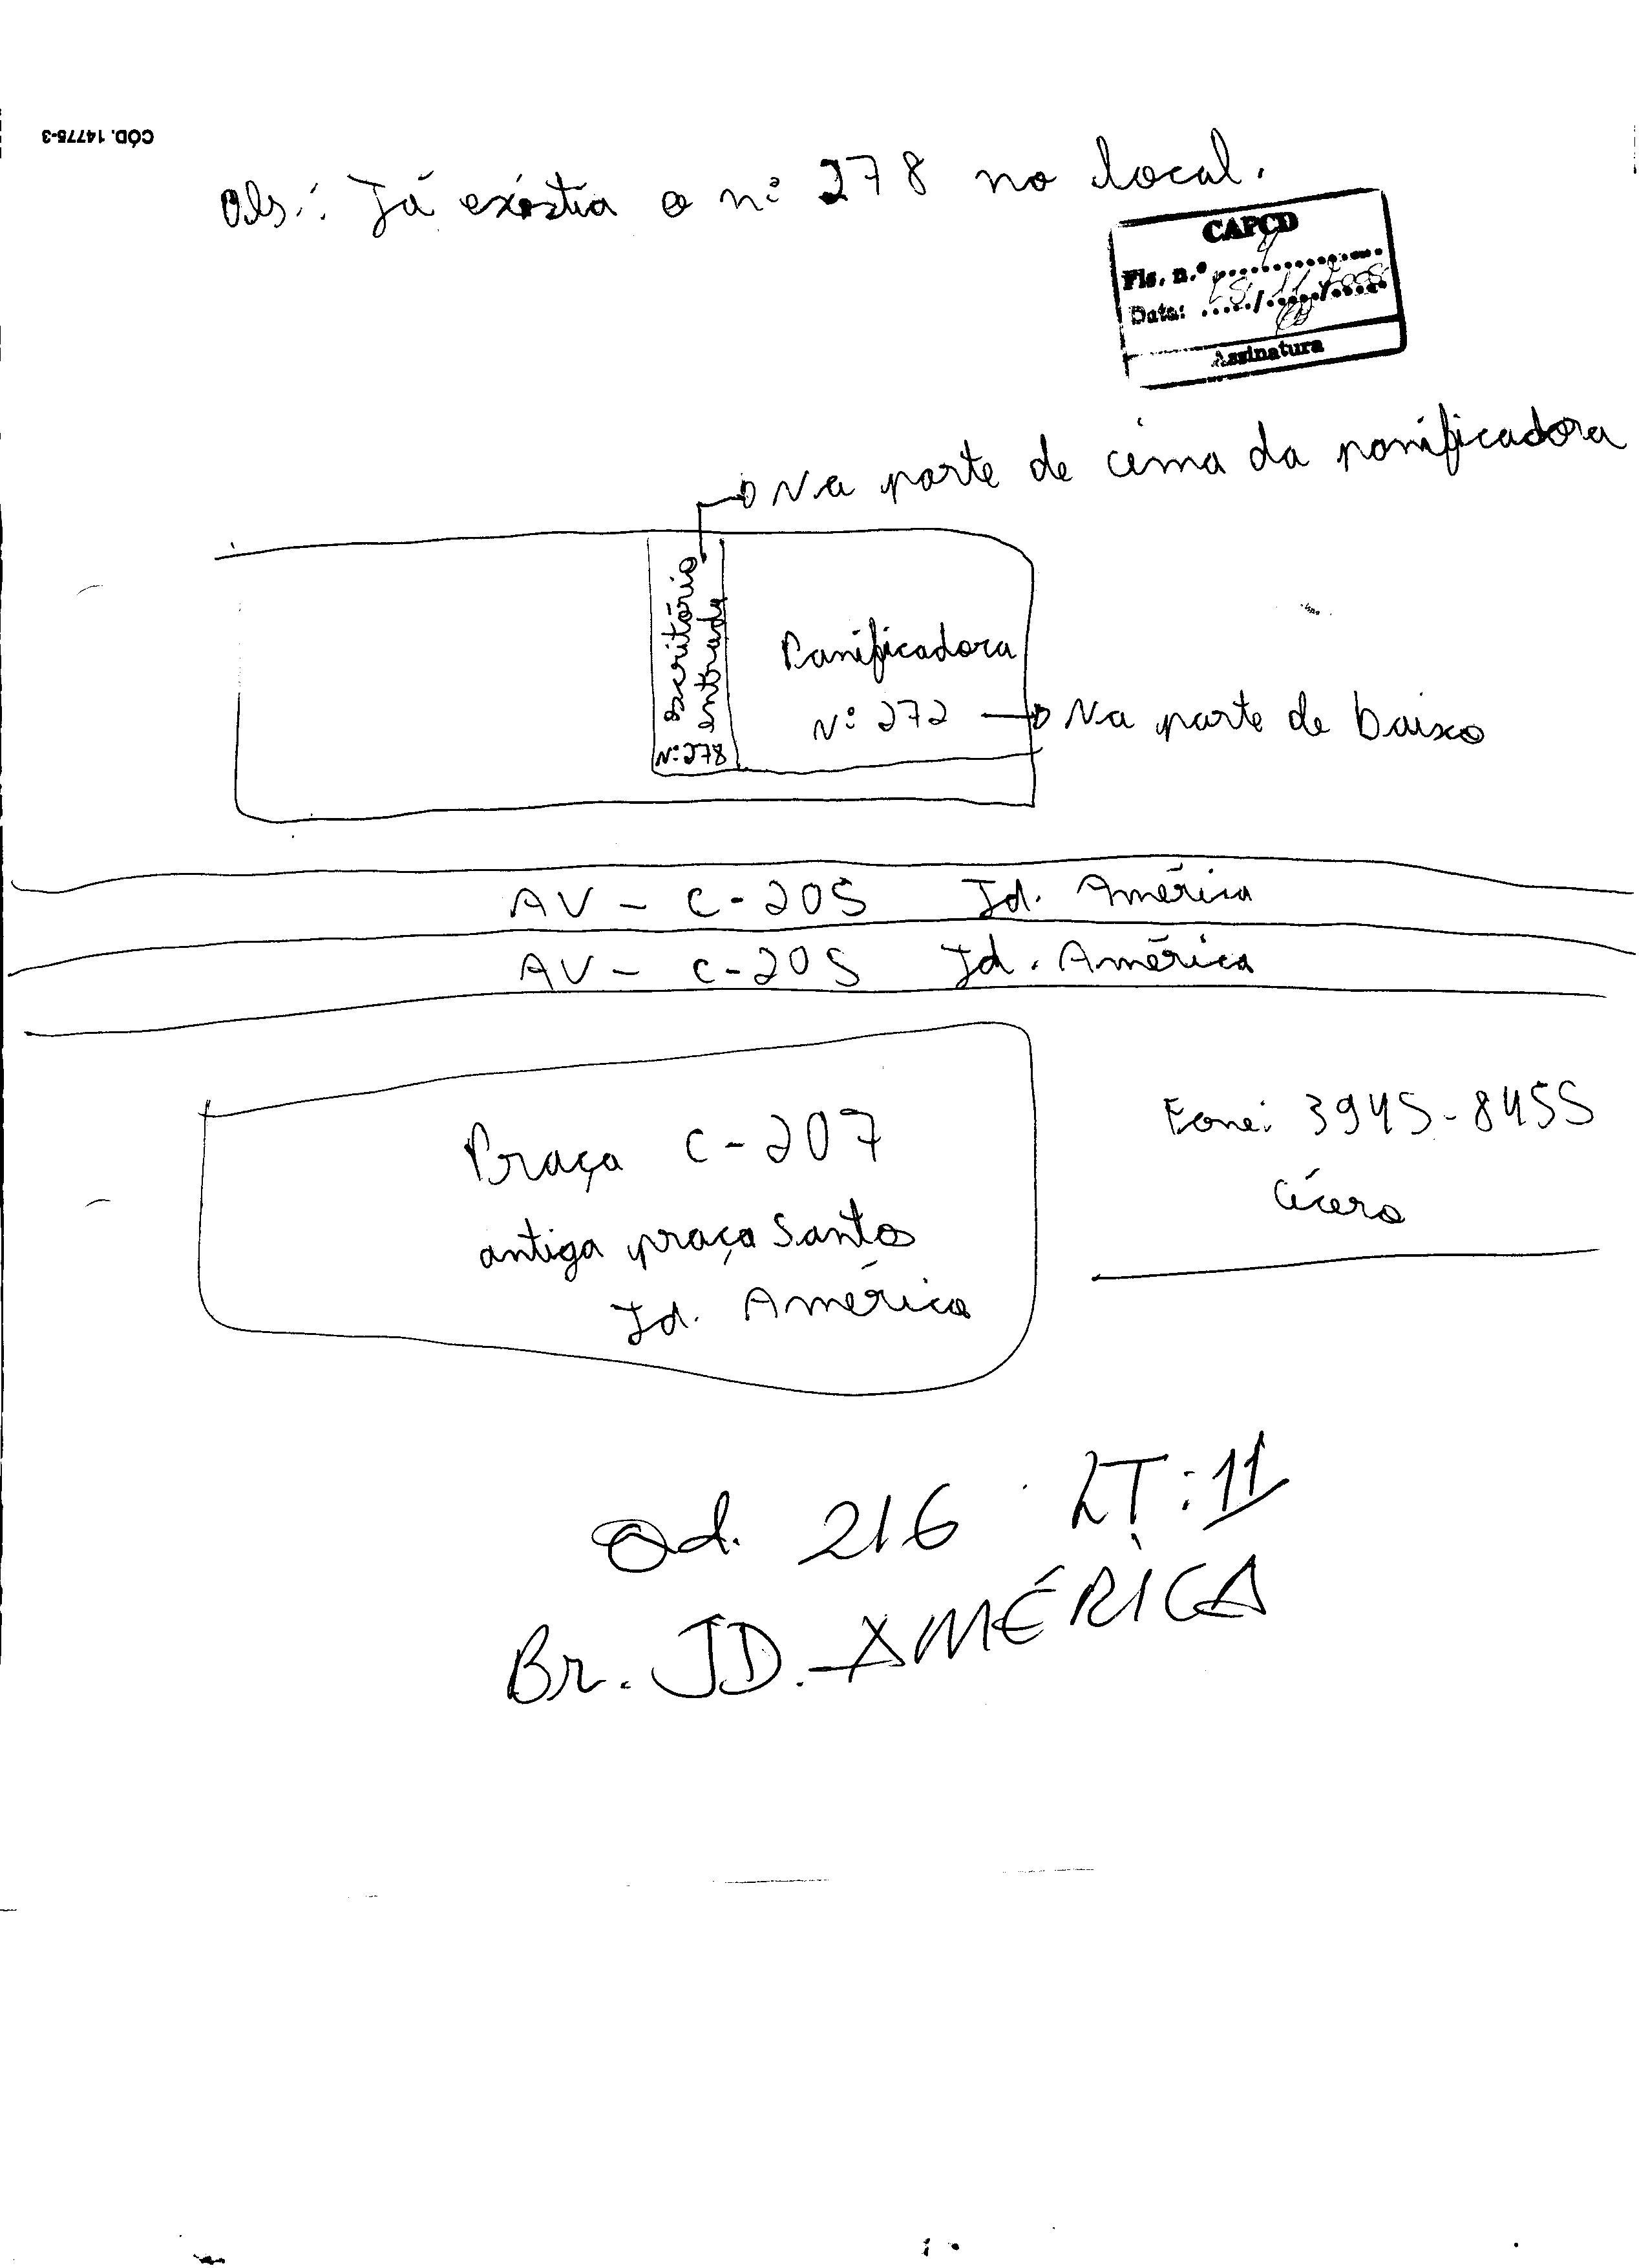 CÓD. 14775-3
Obs.: Já existia o nº 278 no local.
CAPCD
Fls. n.º
Data:
Assinatura
Na parte de cima da panificadora
escritório
entrada
Nº 278
Panificadora
Nº 272
Na parte de baixo
AV - C-205 Jd. América
AV - C-205 Jd. América
Praça C-207
antiga praça Santos
Jd. América
Fone: 3945-8455
Cícero
Qd. 216 LT: 11
Br. JD. AMÉRICA